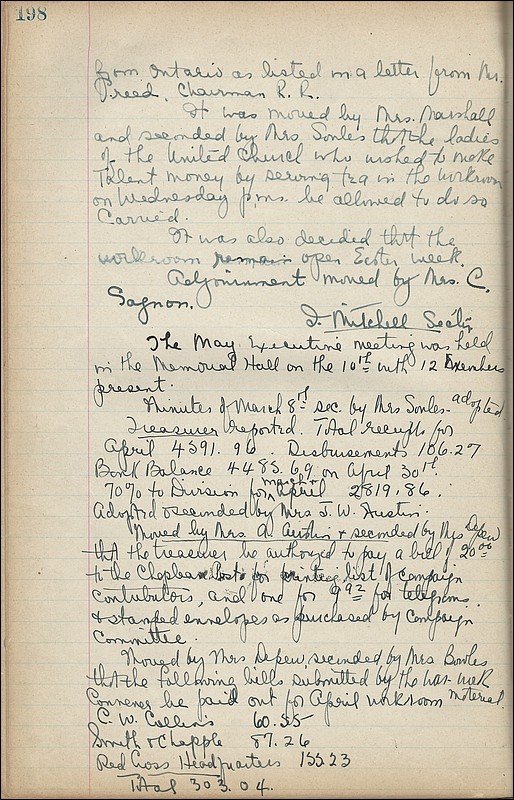 198
from Ontario as listed in a letter from Mr.
Preed, Chairman R.R.
It was moved by Mrs. Marshall
and seconded by Mrs Soules that the ladies
of the United Church who wished to make
Talent money by serving tea in the workroom
on Wednesday p.m.s. be allowed to do so
Carried.
It was also decided that the
workroom remain open Easter week.
Adjournment moved by Mrs. C.
Sagnon.
I. Mitchell Sec'ty
The May Executive meeting was held
in the Memorial Hall on the 10th with 12 members
present.
Minutes of March 8th sec. by Mrs Soules - adopted
Treasurer reported. Total receipts for
April 4591.96. Disbursements 106.27
Bank Balance 4485.69 on April 30th.
70% to Division for March & April 2819.86.
Adopted & seconded by Mrs J. W. Austin.
Moved by Mrs. A. Austin & seconded by Mrs Depew
that the treasurer be authorized to pay a bill of 20.00
to the Chapleau Post for printing list of campaign
contributors, and one for 9.92 for telegrams
& stamped envelopes as purchased by Campaign
Committee.
Moved by Mrs Depew, seconded by Mrs Bowles
that the following bills submitted by the war work
Convener be paid out for April workroom material.
C. W. Collins 60.55
Smith & Chapple 87.26
Red Cross Headquarters 155.23
Total 303.04.